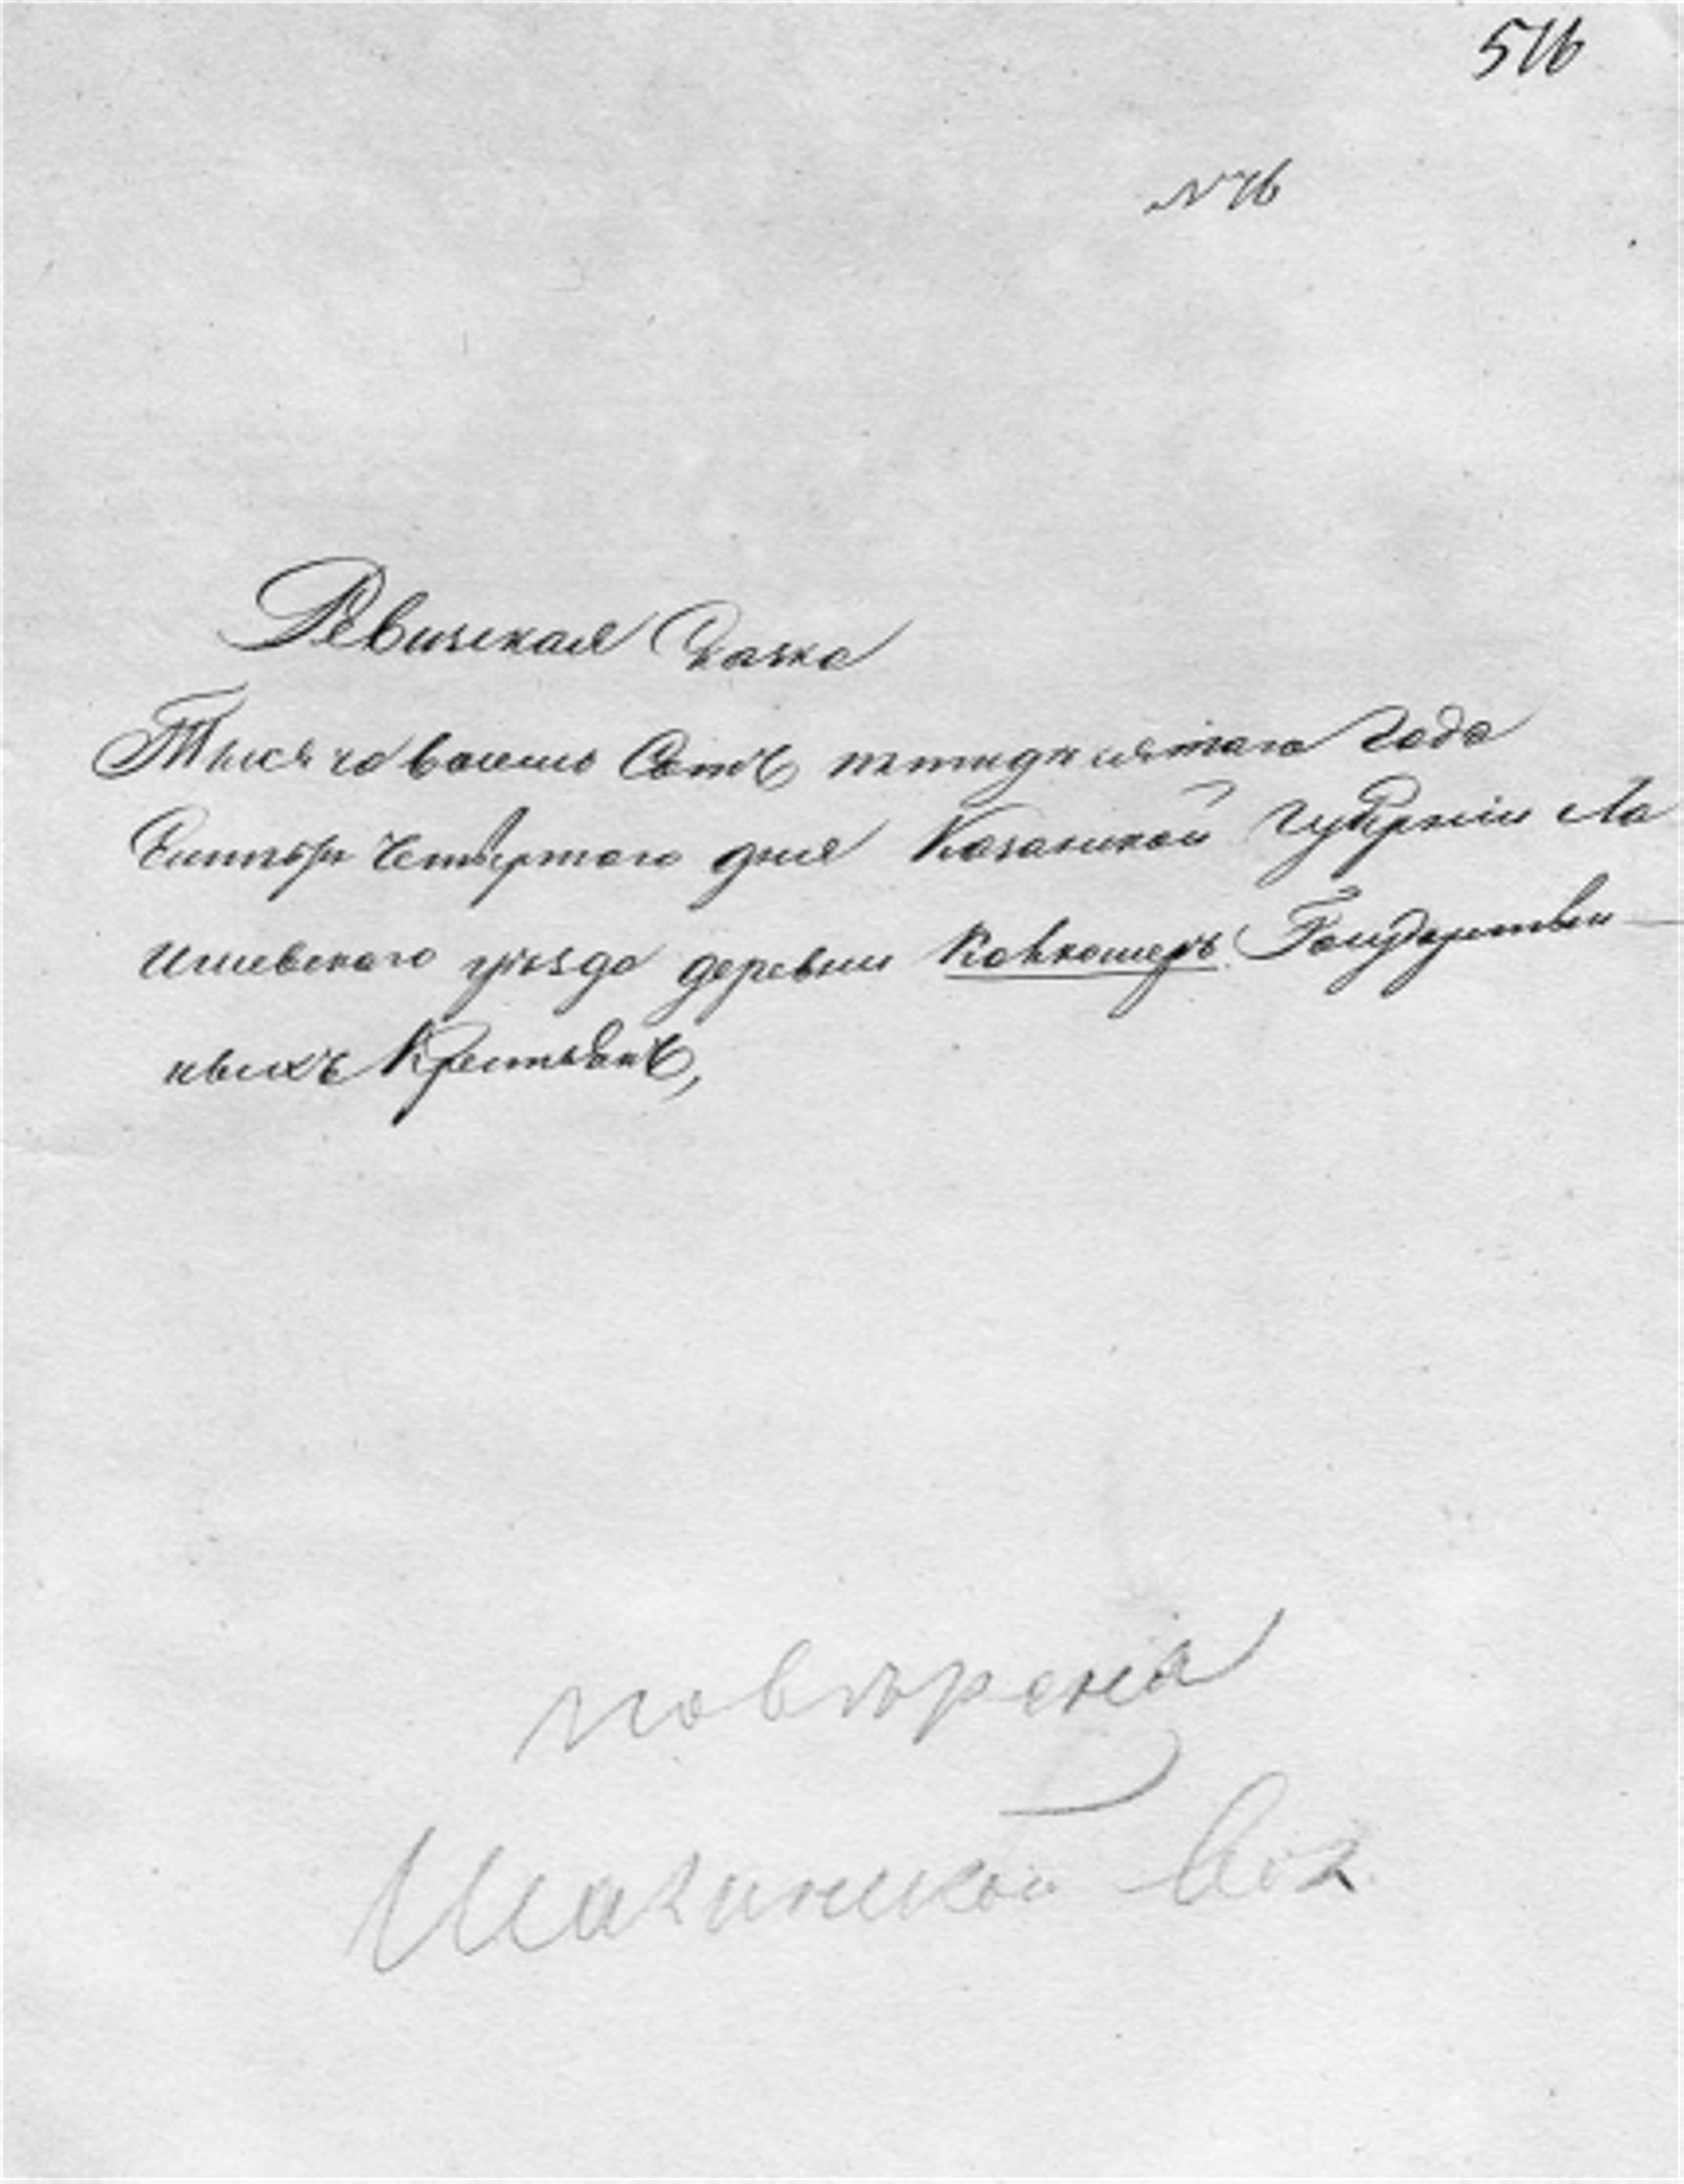 516
№ 76
Ревизская Сказка
Тысяча восемь Сотъ пятидесятаго Года
Сентября Четвертаго дня Казанской Губерніи Ла
ишевскаго уѣзда деревни Государствен
ныхъ Крестьянъ,
повѣрена
вол.